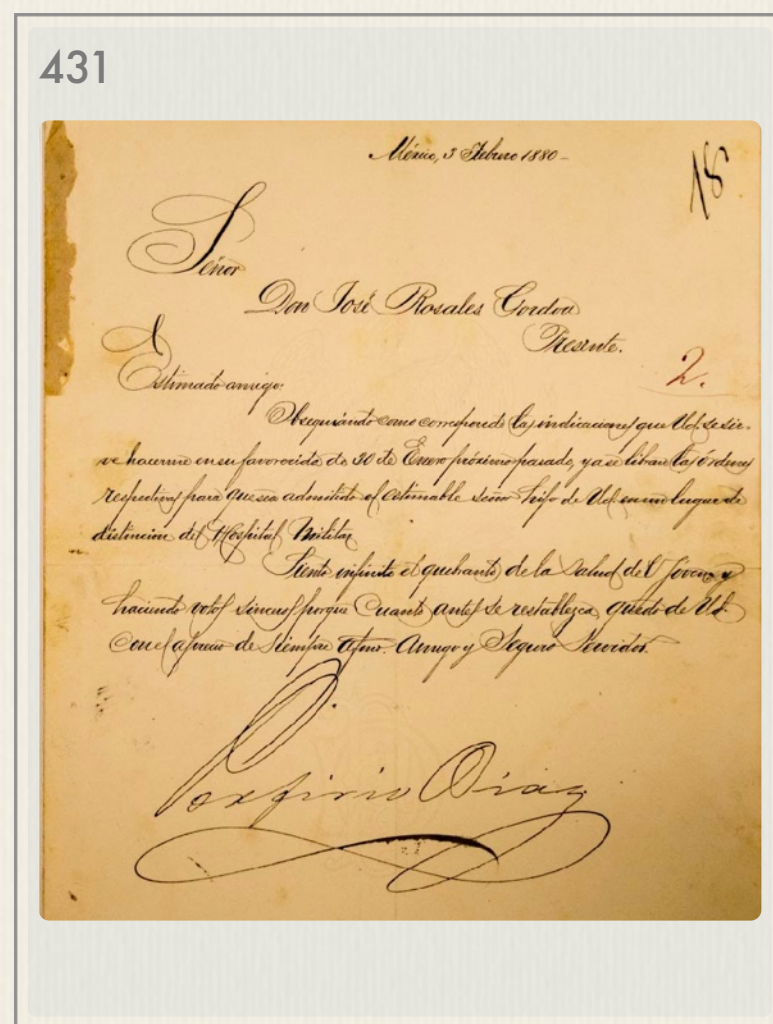 431
México, 3 Febrero 1880-
18
Señor
Don José Rosales Gordoa
Presente.
2.
Estimado amigo:
Obsequiando como corresponde las indicaciones que Ud. se sir-
ve hacerme en su favorecida de 30 de Enero próximo pasado, ya se libran las órdenes
respectivas para que sea admitido el estimable señor hijo de Ud. en un lugar de
distincion del Hospital Militar
Siento infinito el quebranto de la salud del jóven, y
haciendo votos sinceros porque cuanto antes se restablezca, quedo de Ud.
con el aprecio de siempre afmo. Amigo y Seguro Servidor.
Porfirio Diaz